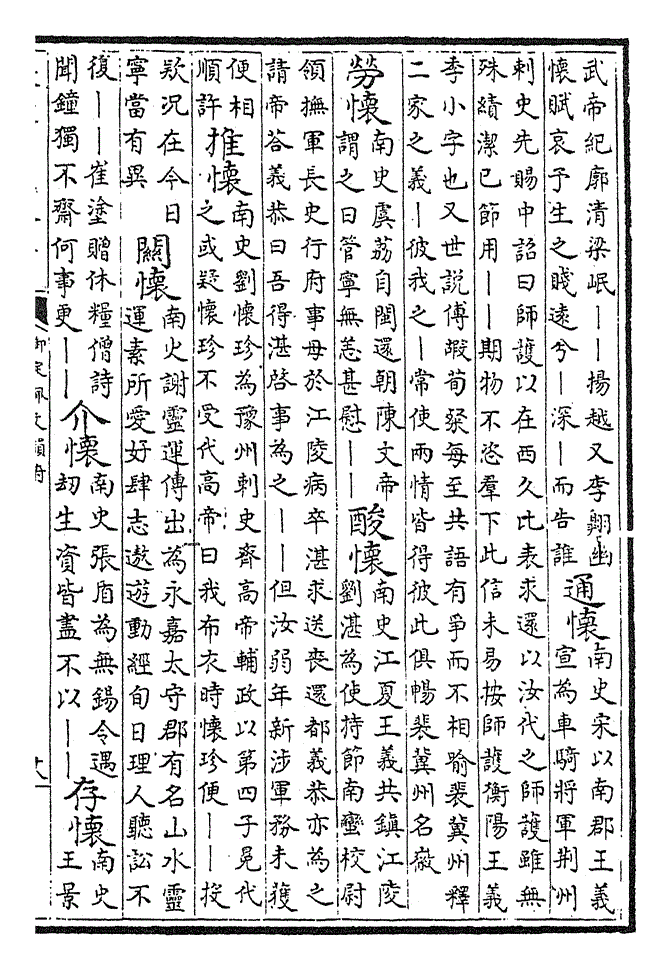 武帝紀廓清梁岷｜｜揚越又李翶幽
懷賦哀予生之賤遠兮｜深｜而告誰
通懷
南史宋以南郡王義
宣為車騎將軍荆州
刺史先賜中詔曰師護以在西久比表求還以汝代之師護雖無
殊績潔已節用｜｜期物不恣羣下此信未易按師護衡陽王義
季小字也又世說傅嘏荀粲每至共語有爭而不相喻裴冀州釋
二家之義｜彼我之｜常使兩情皆得彼此俱暢裴冀州名徽
勞懷
南史虞荔自閩還朝陳文帝
謂之曰管寧無恙甚慰｜｜
酸懷
南史江夏王義共鎮江陵
劉湛為使持節南蠻校尉
領撫軍長史行府事母於江陵病卒湛求送喪還都義恭亦為之
請帝荅義恭曰吾得湛啓事為之｜｜但汝弱年新涉軍務未獲
便相
順許
推懷
南史劉懷珍為豫州刺史齊高帝輔政以第四子晃代
之或疑懷珍不受代高帝曰我布衣時懷珍便｜｜投
欵況在今日
寧當有異
關懷
南史謝靈運傳出為永嘉太守郡有名山水靈
運素所愛好肆志遨遊動經旬日理人聽訟不
復｜｜崔塗贈休糧僧詩
聞鐘獨不齋何事更｜｜
介懷
南史張盾為無錫令遇
刧生資皆盡不以｜｜
存懷
南史
王景
御定佩文韻府